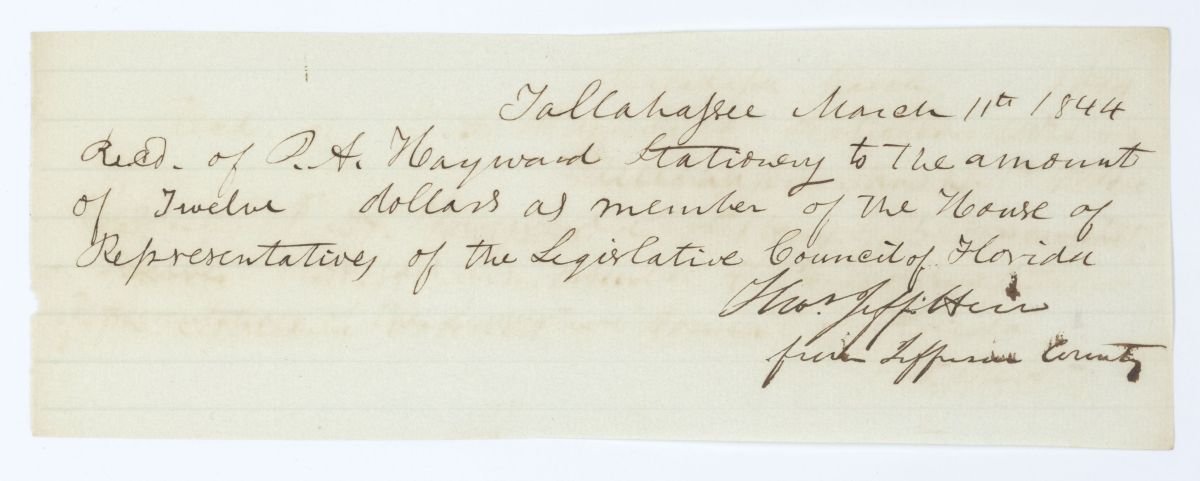 Tallahassee March 11th 1844
Recd. of P. A. Hayward Stationery to the amount
of Twelve dollars as member of the House of
Representatives of the Legislative Council of Florida
Thos. Jeff.
from Jefferson County